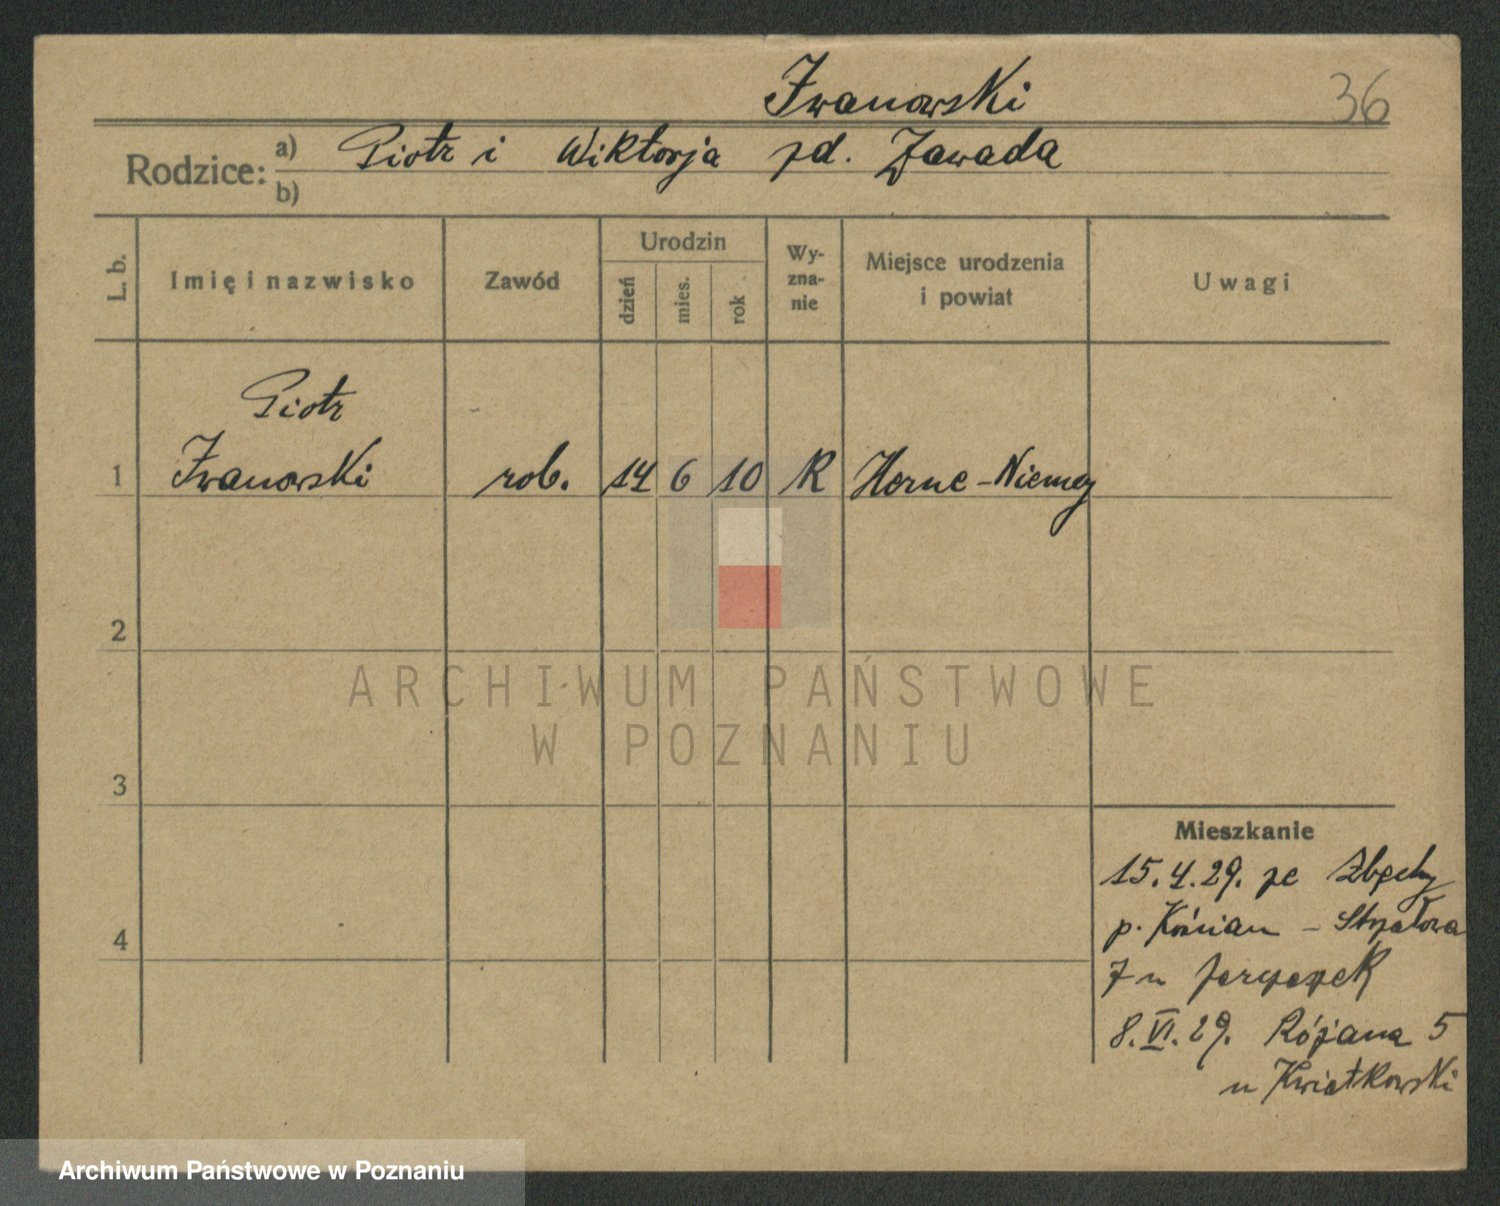 Iwanowski 36
Rodzice: a) Piotr i Wiktorja zd. Zawada
b)
L. b. Imię i nazwisko Zawód Urodzin dzień mies. rok Wy-zna-nie Miejsce urodzenia i powiat Uwagi
Piotr
1 Iwanowski rob. 14 6 10 R Herne-Niemcy
2
ARCHIWUM PAŃSTWOWE
W POZNANIU
3
Mieszkanie
15.4.29. ze Zbęchy
p. Kościan - Strzałowa
4
7 u
8.VI.29. Różana 5
u Kwiatkowski
Archiwum Państwowe w Poznaniu